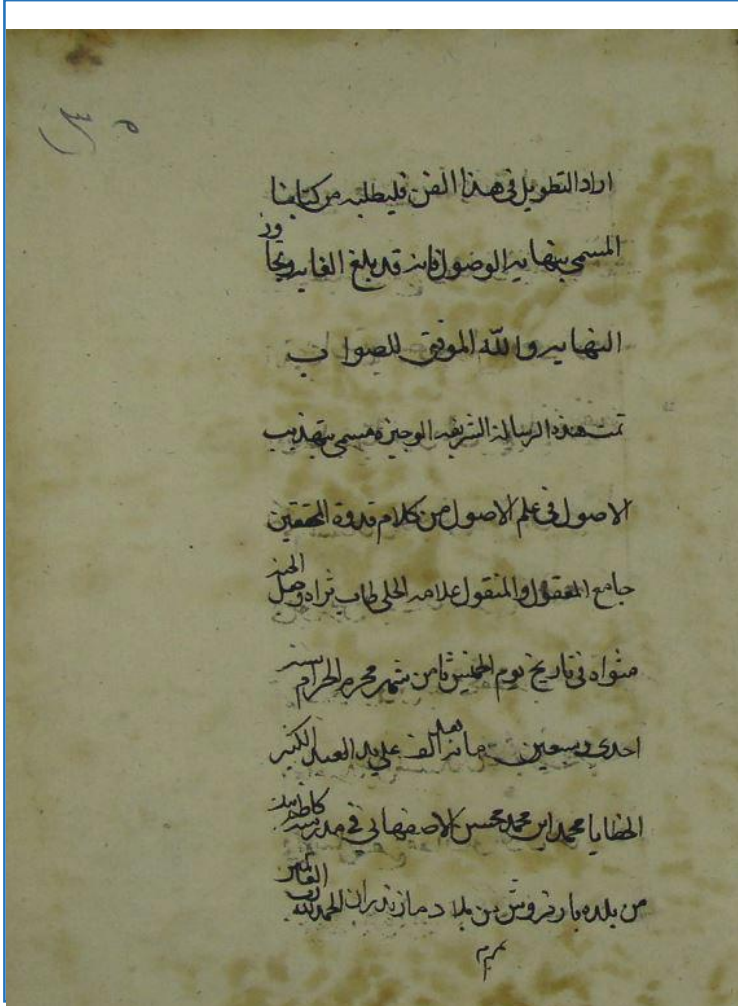 ٣٥
اراد التطويل فى هذا الفن فليطلبه من كتابنا
المسمى بنهايه الوصول فانه قد بلغ الغايه وتجاوز
النهايه والله الموفق للصواب
تمت هذه الرسالة الشريفه الوجيزه مسمى بتهذيب
الاصول فى علم الاصول من كلام قدوة المحققين
جامع المعقول والمنقول علامه الحلى طاب ثراه وجعل الجنه
مثواه فى تاريخ يوم الخميس ثامن شهر محرم الحرام سنه
احدى وسعين مائه بعد الف على يد العبد الكثير
الخطايا محمد ابن محمد محسن الاصفهانى فى مدرسه كاظم بيك
من بلده بارفروش من بلاد مازندران الحمد لله رب العالمين